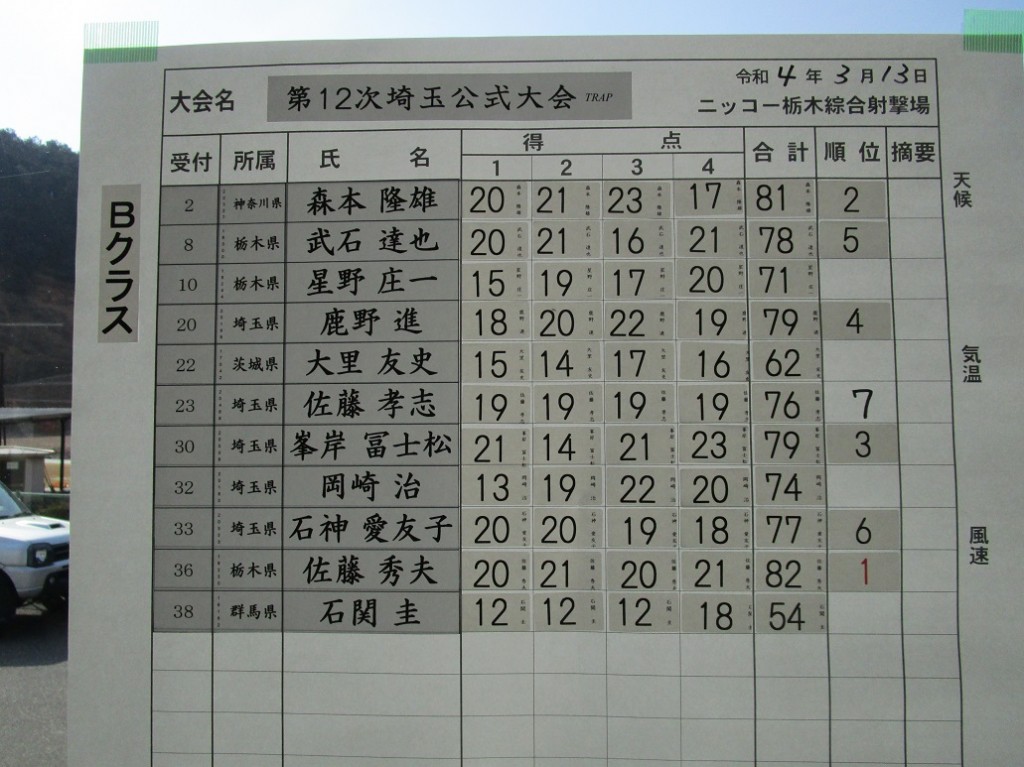 令和 4 年 3 月 13 日
大会名 第12次埼玉公式大会 TRAP ニッコー栃木綜合射撃場
受付 所属 氏 名 得 点 合 計 順 位 摘要
1 2 3 4
2 神奈川県 森本 隆雄 20 21 23 17 81 2
8 栃木県 武石 達也 20 21 16 21 78 5
10 栃木県 星野 庄一 15 19 17 20 71
20 埼玉県 鹿野 進 18 20 22 19 79 4
22 茨城県 大里 友史 15 14 17 16 62
23 埼玉県 佐藤 孝志 19 19 19 19 76 7
30 埼玉県 峯岸 冨士松 21 14 21 23 79 3
32 埼玉県 岡崎 治 13 19 22 20 74
33 埼玉県 石神 愛友子 20 20 19 18 77 6
36 栃木県 佐藤 秀夫 20 21 20 21 82 1
38 群馬県 石関 圭 12 12 12 18 54
Bクラス
天候
気温
風速